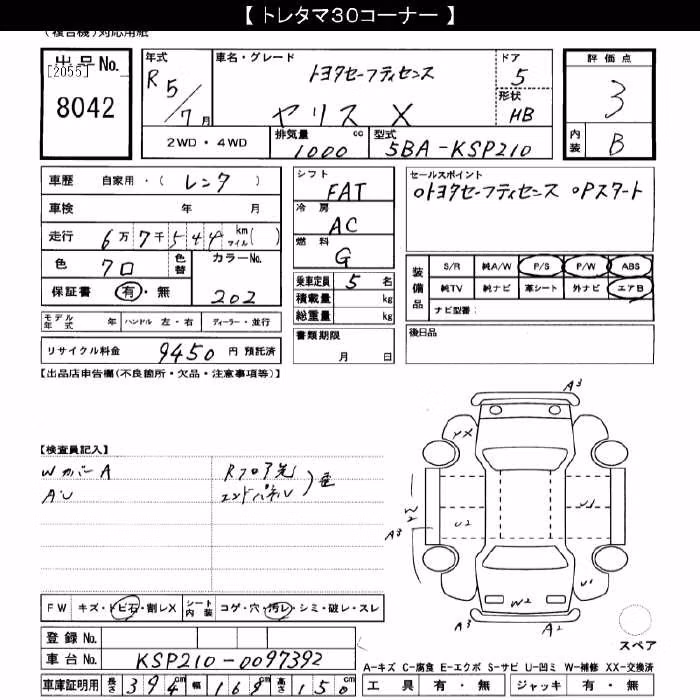 【 トレタマ30コーナー 】
(複合機)対応用紙
出品No.
[2055]
8042
年式
R5/7月
車名・グレード
トヨタセーフティセンス
ヤリス X
ドア
5
形状
HB
評価点
3
内装
B
2WD・4WD
排気量
1000 cc
型式
5BA-KSP210
車歴 自家用・( レンタ )
車検 年 月
走行 6万7千544 km マイル( )
色 クロ
色替
カラーNo.
202
保証書 有・無
モデル年式 年 ハンドル 左・右 ディーラー・並行
リサイクル料金 9450 円 預託済
シフト
FAT
冷房
AC
燃料
G
乗車定員 5 名
積載量 kg
総重量 kg
書類期限
月 日
セールスポイント
○トヨタセーフティセンス ○Pスタート
装備品
S/R 純A/W P/S P/W ABS
純TV 純ナビ 革シート 外ナビ エアB
ナビ型番:
後日品
【出品店申告欄(不良箇所・欠品・注意事項等)】
【検査員記入】
Wカバー A
AU
Rフロア先
エンドパネル
) 歪
A3
YX
W2
A3
U2
U1
U1
W2
A3
A2
スペア
FW キズ・トビ石・割レX
シート内装 コゲ・穴・汚レ・シミ・破レ・スレ
登録No.
車台No. KSP210-0097392
車庫証明用 長さ 394cm 幅 169cm 高さ 150cm
A-キズ C-腐食 E-エクボ S-サビ U-凹ミ W-補修 XX-交換済
工具 有・無 ジャッキ 有・無